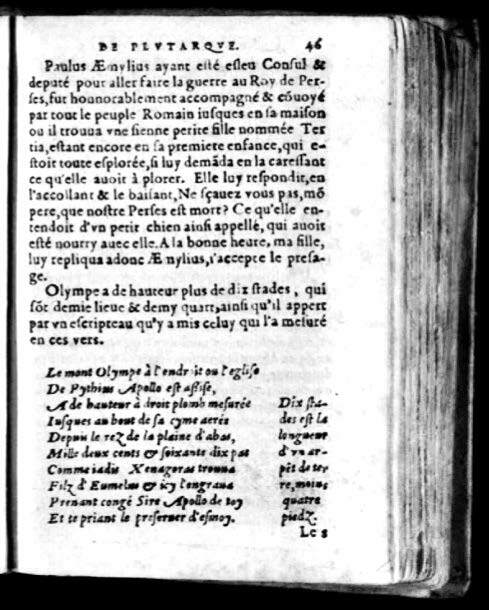 DE PLVTARQVE. 46
Paulus Æmylius ayant esté esleu Consul &
deputé pour aller faire la guerre au Roy de Per-
ses, fut hounorablement accompagné & cōuoyé
par tout le peuple Romain iusques en sa maison
ou il trouua vne sienne petite fille nommée Ter
tia, estant encore en sa premiere enfance, qui e-
stoit toute esplorée, si luy demāda en la caressant
ce qu'elle auoit à plorer. Elle luy respondit, en
l'accollant & le baisant, Ne sçauez vous pas, mō
pere, que nostre Perses est mort? Ce qu'elle en-
tendoit d'vn petit chien ainsi appellé, qui auoit
esté nourry auec elle. A la bonne heure, ma fille,
luy repliqua adonc Æmylius, i'accepte le presa-
ge.
Olympe a de hauteur plus de dix stades, qui
sōt demie lieue & demy quart, ainsi qu'il appert
par vn escripteau qu'y a mis celuy qui l'a mesuré
en ces vers.
Le mont Olympe à l'endroit ou l'eglise
De Pythius Apollo est assise,
A de hauteur à droit plomb mesurée
Iusques au bout de sa cyme aerée
Depuis le rez de la plaine d'abas,
Mille deux cents & soixante dix pas
Comme iadis Xenagoras trouua
Filz d'Eumelus & icy l'engraua
Prenant congé Sire Apollo de toy
Et te priant le preseruer d'esmoy.
Dix sta-
des est la
longueur
d'vn ar-
pēt de ter
re, moins
quatre
piedz.
Les